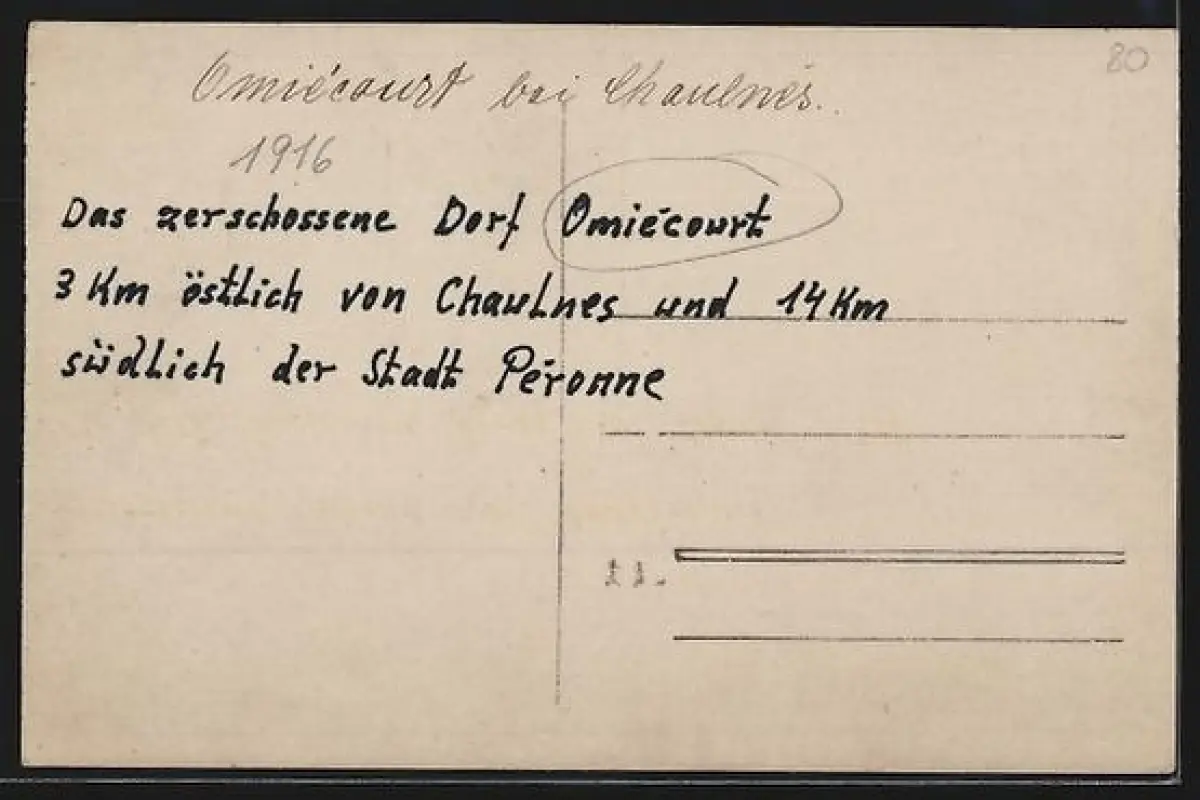 80
Omiécourt bei Chaulnes.
1916
Das zerschossene Dorf Omiécourt
3 Km östlich von Chaulnes und 14 Km
südlich der Stadt Péronne